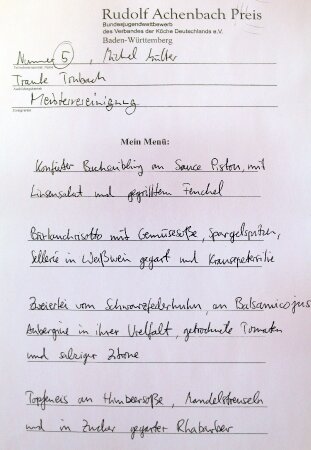 Rudolf Achenbach Preis
Bundesjugendwettbewerb
des Verbandes der Köche Deutschlands e.V.
Baden-Württemberg
Nummer 5, Michel Müller
Traube Tonbach
Meistervereinigung
Mein Menü:
Konfierter Buchsaibling an Sauce Piston, mit
Linsensalat und gegrilltem Fenchel
Bärlauchrisotto mit Gemüsesoße, Spargelspitzen,
Sellerie in Weißwein gegart und Krausepetersilie
Zweierlei vom Schwarzfederhuhn, an Balsamicojus
Aubergine in ihrer Vielfalt, getrocknete Tomaten
und salziger Zitrone
Topfeneis an Himbeersoße, Mandelstreuseln
und in Zucker gegarter Rhabarber